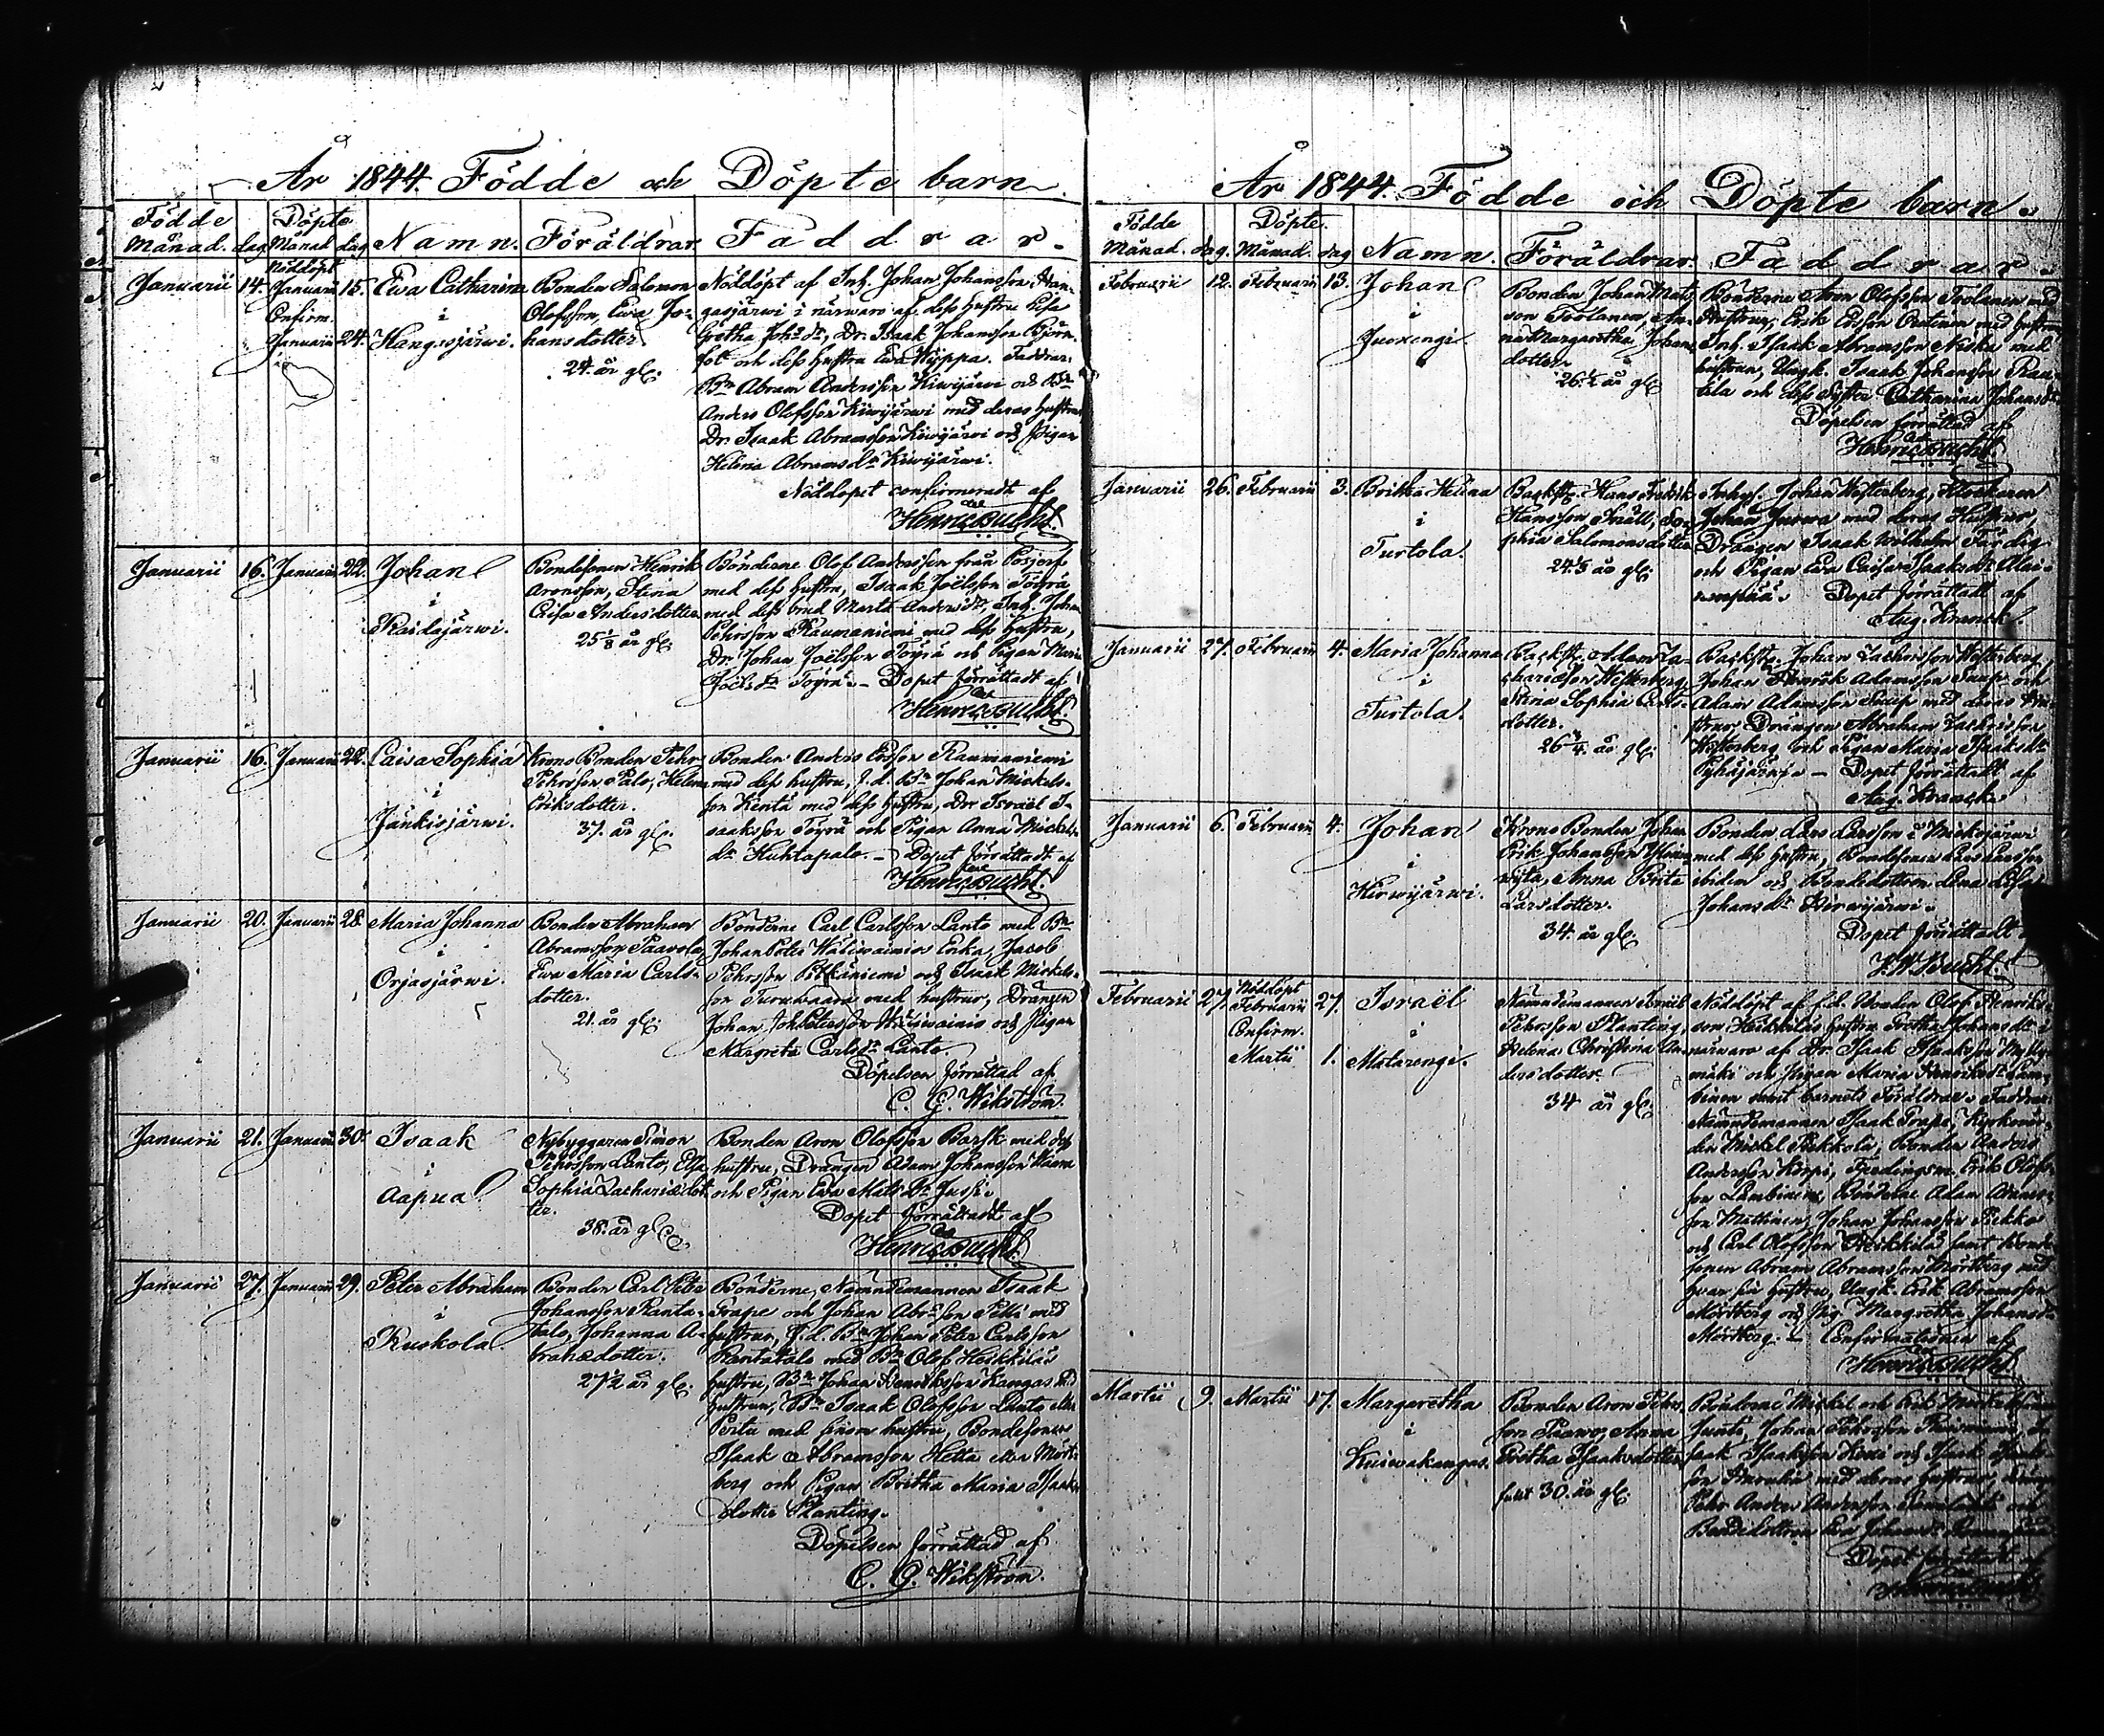 År 1844. Födde och Döpte barn
Födde Månad. dag Döpte Månad dag Namn. Föräldrar Faddrar.
Januarii 14. Nöddöpt Januarii 15. Confirm. Januarii 24.
Ewa Catharina
i
Hangasjärwi.
Bonden Salomon
Olofsson, Ewa Jo-
hansdotter
24. år gl.
Nöddöpt af Inh. Johan Johansson Han-
gasjärwi i närwaro af dess hustru Elsa
Gretha Johs dr, Dr. Isaak Johansson Björn-
fot och dess hustru Ewa Wyppa. Faddrar:
Bn Abram Andersson Kiwijärwi och Bn
Anders Olofsson Kiwijärwi med deras hustrur
Dr. Isaak Abramsson Kiwijärwi och Pigan
Helena Abrams dr Kiwijärwi.
Nöddopet confirmeradt af
Henric Bucht.
Januarii 16. Januarii 22.
Johan
i
Raidajärwi.
Bondesonen Henrik
Aronsson, Stina
Caisa Andersdotter
25 1/8 år gl.
Bönderne Olof Andersson från
med dess hustru, Isaak Joëlsson Töyrä
med dess Marta Anders dr, Inh. Johan
Pehrsson Raumaniemi med dess hustru,
Dr. Johan Joëlsson Töyrä och Pigan Maria
Joëls dr Töyrä. - Dopet förrättadt af
Henric Bucht.
Januarii 16. Januarii 22.
Caisa Sophia
i
Jänkisjärwi.
Krono Bonden Pehr
Pehrsson Palo, Helena
Eriksdotter.
37. år gl.
Bonden Anders Ersson Raumaniemi
med dess hustru, f.d. Bn Johan Mickels-
son Kenta med dess hustru, Dr Israël I-
saaksson Töyrä och Pigan Anna Mickels
dr Huhtapalo. - Dopet förrättadt af
Henric Bucht.
Januarii 20. Januarii 28.
Maria Johanna
i
Orjasjärwi.
Bonden Abraham
Abramsson Paavola,
Ewa Maria Carls-
dotter.
21. år gl.
Bönderne Carl Carlsson Lanto med Bn
Johan Peter Wäliwainios Enka, Jacob
Pehrsson Pitkäniemi och Isaak Mickels-
son Turuwaara med hustrur, Drängen
Johan JohPetersson Wäliwainio och Pigan
Margreta Carls dr Lanto.
Döpelsen förrättad af
C. G. Wikström.
Januarii 21. Januarii 30.
Isaak
i
Aapua
Nybyggaren Simon
Pehrsson Lanto, Elsa
Sophia Zachariædot
ter.
38. år gl.
Bonden Aron Olofsson Barsk med dess
hustru, Drängen Adam Johansson Waara
och Pigan Ewa Mats dr Jussi.
Dopet förrättadt af
Henric Bucht.
Januarii 27. Januarii 29.
Peter Abraham
i
Ruskola
Bonden Carl Peter
Johansson Ranta-
talo, Johanna A-
brahsdotter.
27 1/2 år gl.
Bönderne, Nämndemannen Isaak
Grape och Johan Abrsson Pelli med
hustrur, f.d. Bn Johan Peter Carlsson
Rantatalo med Bn Olof Heikkiläs
hustru, Bn Johan Henriksson Kangas med
hustrun, Bn Isaak Olofsson Lanto eller
Pertu med sinom hustru, Bondesonen
Isaak Abramsson Hetta eller Mört-
berg och Pigan Britha Maria Isaaks
dotter Planting.
Döpelsen förrättad af
C. G. Wikström.
År 1844. Födde och Döpte barn.
Födde Månad. dag. Döpte. Månad. dag Namn. Föräldrar. Faddrar.
Februarii 12. Februarii 13.
Johan
i
Juoxengi
Bonden Johan Mats
son Toolanen, An-
na Margaretha Johans
dotter.
26 1/2 år gl.
Bönderne Aron Olofsson Toolanen med
hustrur, Erik Ersson med hustru
Inh. Isaak Abramsson Niska med
hustrun, Ungk. Isaak Johansson Rau-
tila och dess Syster Catharina Johans dr
Döpelsen förrättad af
Henric Bucht.
Januarii 26. Februarii 3.
Britha Helena
i
Turtola.
Backst. Hans Fredrik
Hansson Snäll, So-
phia Salomonsdotter
24 1/3 år gl.
Inhys. Johan Westerberg, Klockaren
Johan Jurwa med deras Hustrur,
Drängen Isaak Wilhelm
och Pigan Ewa Caisa Isaaks dr Alai-
nenpää. Dopet förrättadt af
Aug. Kranck.
Januarii 27. Februarii 4.
Maria Johanna
i
Turtola.
Backst. Adam Za-
chariæsson Westerberg,
Stina Sophia Carls-
dotter.
26 3/4. år gl.
Backst. Johan Zachrisson Westerberg,
Johan Henrik Adamsson och
Adam Adamsson med deras Hu-
strur, Drängen Abraham Zachrisson
Westerberg och Pigan Maria Isaaks dr
Pyhäjärwi. - Dopet förrättadt af
Aug. Kranck.
Januarii 6. Februarii 4.
Johan
i
Hirwijärwi.
Krono Bonden Johan
Erik Johansson
Anna Brita
Larsdotter.
34. år gl.
Bonden Lars Larsson i Miekojärwi
med dess hustru, Bondesonen Lars Larsson
ibidem och Bondedottren Lena Lisa
Johans dr Hirwijärwi.
Dopet förrättadt
Bucht.
Februarii 27. Nöddöpt Februarii 27. Confirm. Martii 1.
Israël
i
Matarengi.
Nämndemannen Israël
Pehrsson Planting,
Helena Christina An-
dersdotter.
34 år gl.
Nöddöpt af f.d. Bonden Olof Henriks-
son Heikkiläs hustru Gretha Johans dr i
närwaro af Dr. Isaak Isaaksson Mylly-
mäki och Pigan Maria Henriks dr
samt barnets Föräldrar. Faddrar:
Nämndemannen Isaak Grape, Kyrkowär-
den Mickel Heikkilä, Bonden Anders
Andersson Korpi, Erik Olofs-
son Lambinen, Bönderne Adam
son Mattinen, Johan Johansson Pekka
och Carl Olofsson Heikkilä samt Bonde
sonen Abram Abramsson Mörtberg med
hwar sin hustru, Ungk. Erik Abramsson
Mörtberg och Pig. Margretha Johans dr
Mörtberg. - Confirmationen af
Henric Bucht.
Martii 9. Martii 17.
Margaretha
i
Kuiwakangas.
Bonden Aron Pehrs
son Paawo, Anna
Gretha Isaaksdotter
fullt 30. år gl.
Bönderne Mickel och Erik
Junti, Johan Pehrsson I-
saak Isaaksson och Isaak
son med deras hustrur,
Pehr Anders Andersson och
Bondedottren Ewa Johans dr
Dopet förrättadt af